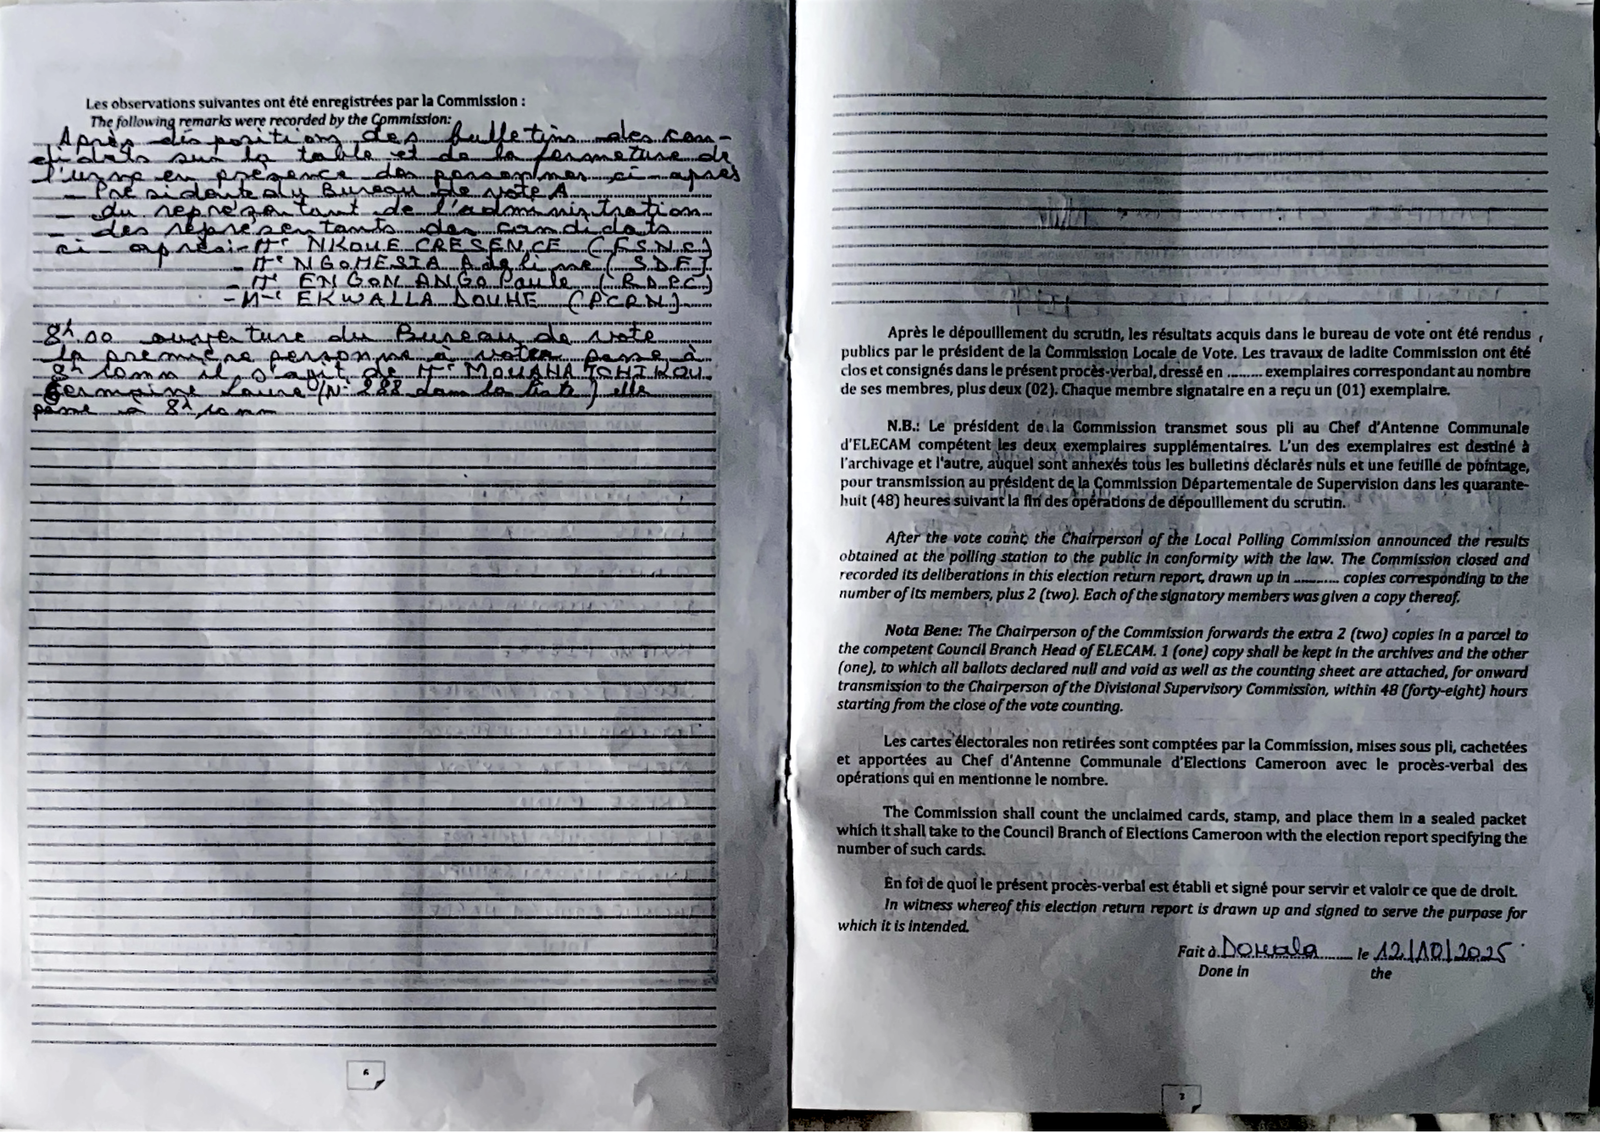 Les observations suivantes ont été enregistrées par la Commission :
The following remarks were recorded by the Commission:
Après dispositions des bulletins des can-
didats sur la table et de la fermeture de
l'urne en présence des personnes ci-après
- Présidente du Bureau de vote A
- du représentant de l'administration
- des représentants des candidats
ci après:- Mme NKOUE CRESENCE (FSNC)
- Mme NGOMESIA Adeline (SDF)
- Mme ENGON ANGO Paule (RDPC)
- Mme EKWALLA DOUHE (PCRN)
8h00 ouverture du Bureau de vote
la première personne à voter passe à
8h10mn il s'agit de Mme MOUAHA TCHIKOU
Germaine Laure (N° 288 dans la liste) elle
passe à 8h10mn
6
Après le dépouillement du scrutin, les résultats acquis dans le bureau de vote ont été rendus
publics par le président de la Commission Locale de Vote. Les travaux de ladite Commission ont été
clos et consignés dans le présent procès-verbal, dressé en ......... exemplaires correspondant au nombre
de ses membres, plus deux (02). Chaque membre signataire en a reçu un (01) exemplaire.
N.B.: Le président de la Commission transmet sous pli au Chef d'Antenne Communale
d'ELECAM compétent les deux exemplaires supplémentaires. L'un des exemplaires est destiné à
l'archivage et l'autre, auquel sont annexés tous les bulletins déclarés nuls et une feuille de pointage,
pour transmission au président de la Commission Départementale de Supervision dans les quarante-
huit (48) heures suivant la fin des opérations de dépouillement du scrutin.
After the vote count, the Chairperson of the Local Polling Commission announced the results
obtained at the polling station to the public in conformity with the law. The Commission closed and
recorded its deliberations in this election return report, drawn up in ........... copies corresponding to the
number of its members, plus 2 (two). Each of the signatory members was given a copy thereof.
Nota Bene: The Chairperson of the Commission forwards the extra 2 (two) copies in a parcel to
the competent Council Branch Head of ELECAM. 1 (one) copy shall be kept in the archives and the other
(one), to which all ballots declared null and void as well as the counting sheet are attached, for onward
transmission to the Chairperson of the Divisional Supervisory Commission, within 48 (forty-eight) hours
starting from the close of the vote counting.
Les cartes électorales non retirées sont comptées par la Commission, mises sous pli, cachetées
et apportées au Chef d'Antenne Communale d'Elections Cameroon avec le procès-verbal des
opérations qui en mentionne le nombre.
The Commission shall count the unclaimed cards, stamp, and place them in a sealed packet
which it shall take to the Council Branch of Elections Cameroon with the election report specifying the
number of such cards.
En foi de quoi le présent procès-verbal est établi et signé pour servir et valoir ce que de droit.
In witness whereof this election return report is drawn up and signed to serve the purpose for
which it is intended.
Fait à Douala le 12/10/2025
Done in the